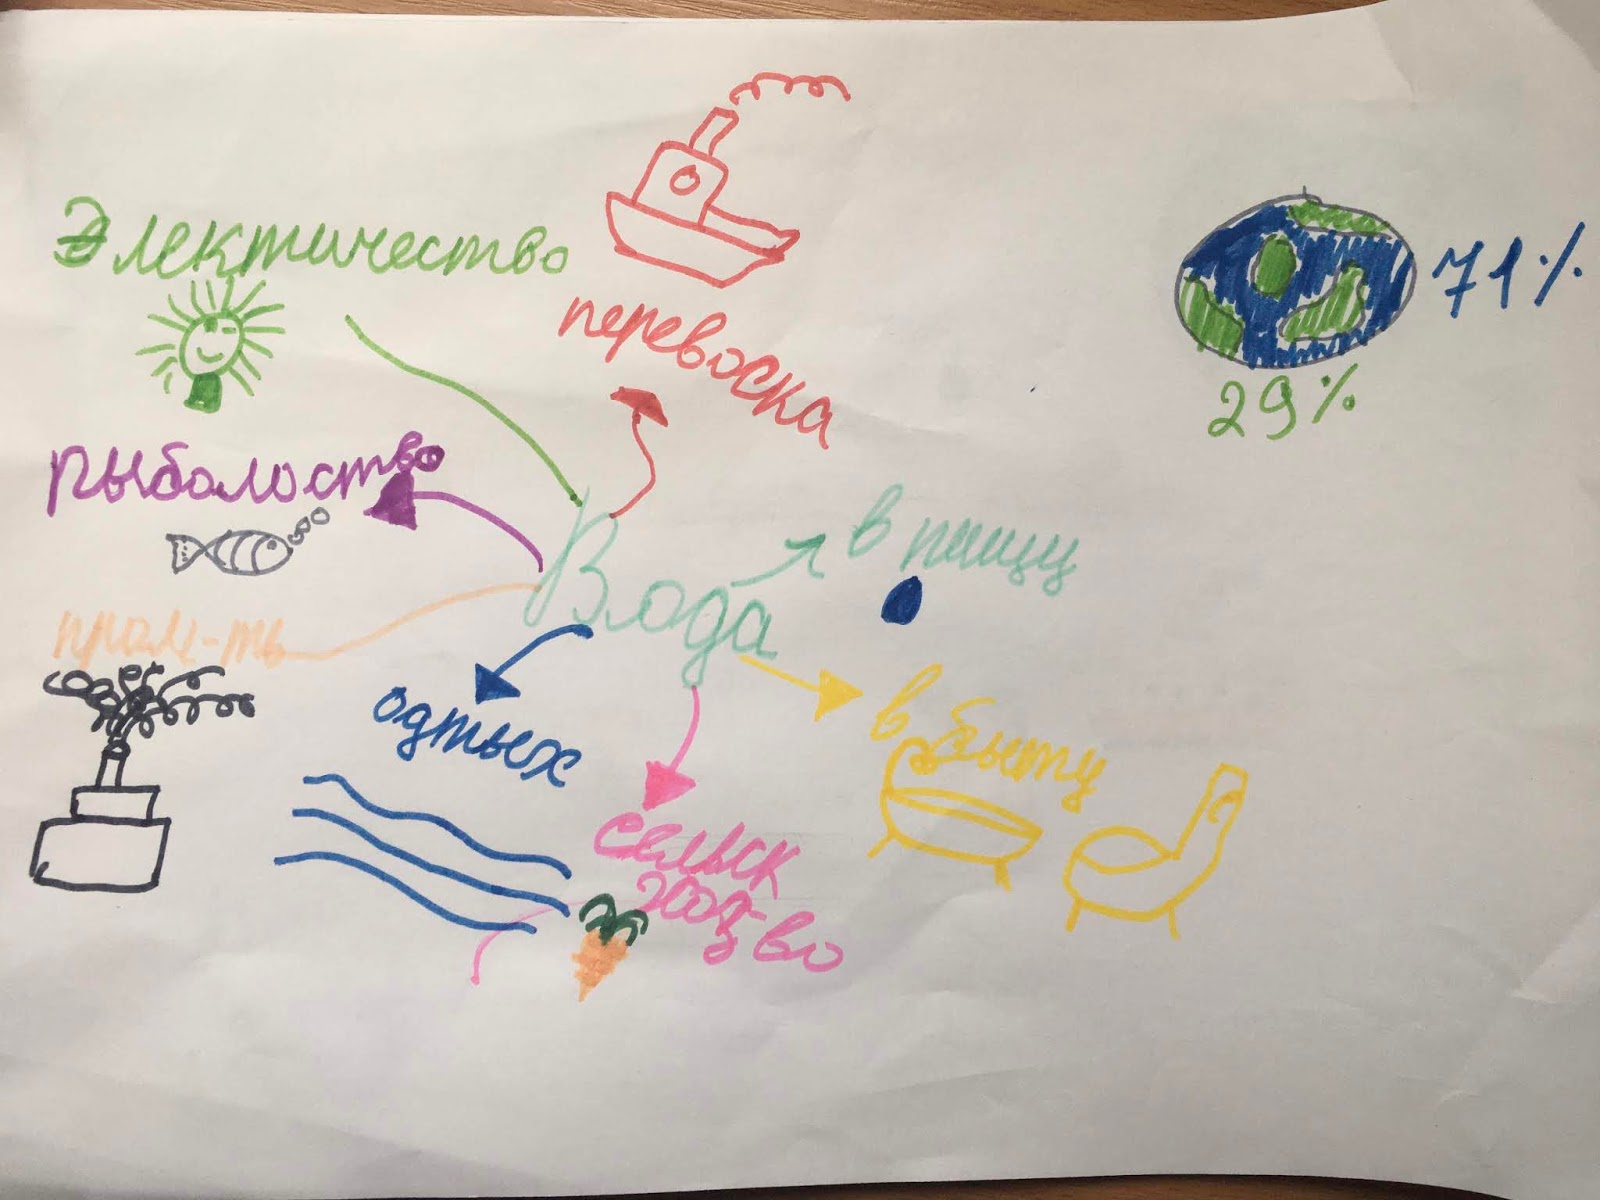 Электичество
перевоска
71%
29%
рыболоство
Вода
в пищу
пром-ть
одтых
в быту
сельск
хоз-во